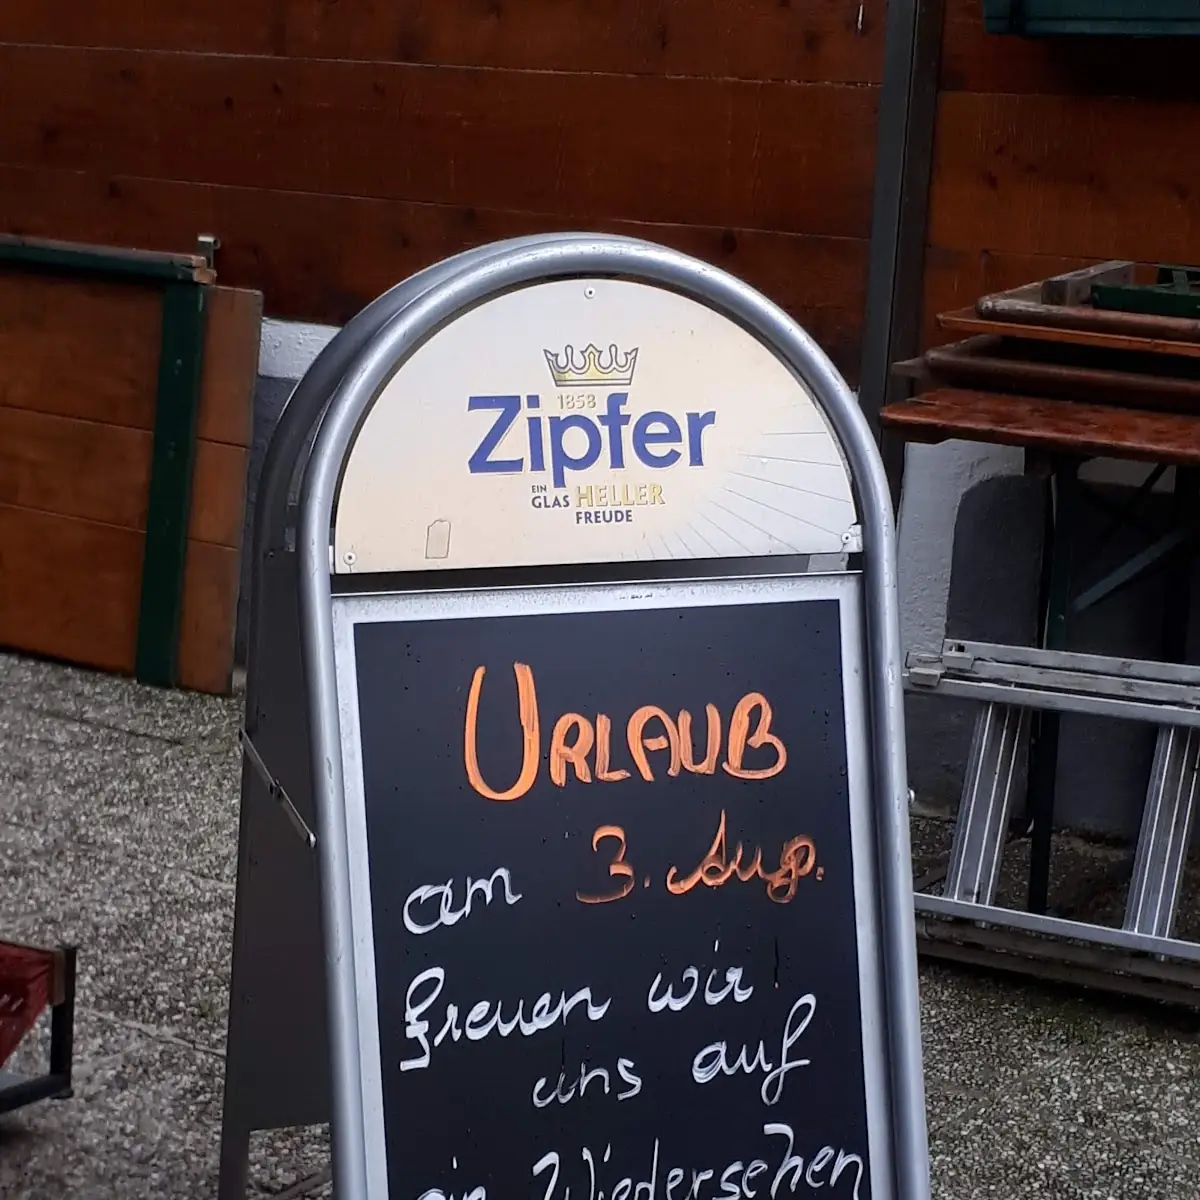 1858
Zipfer
EIN
GLAS HELLER
FREUDE
URLAUB
am 3. Aug.
freuen wir
uns auf
ein Wiedersehen